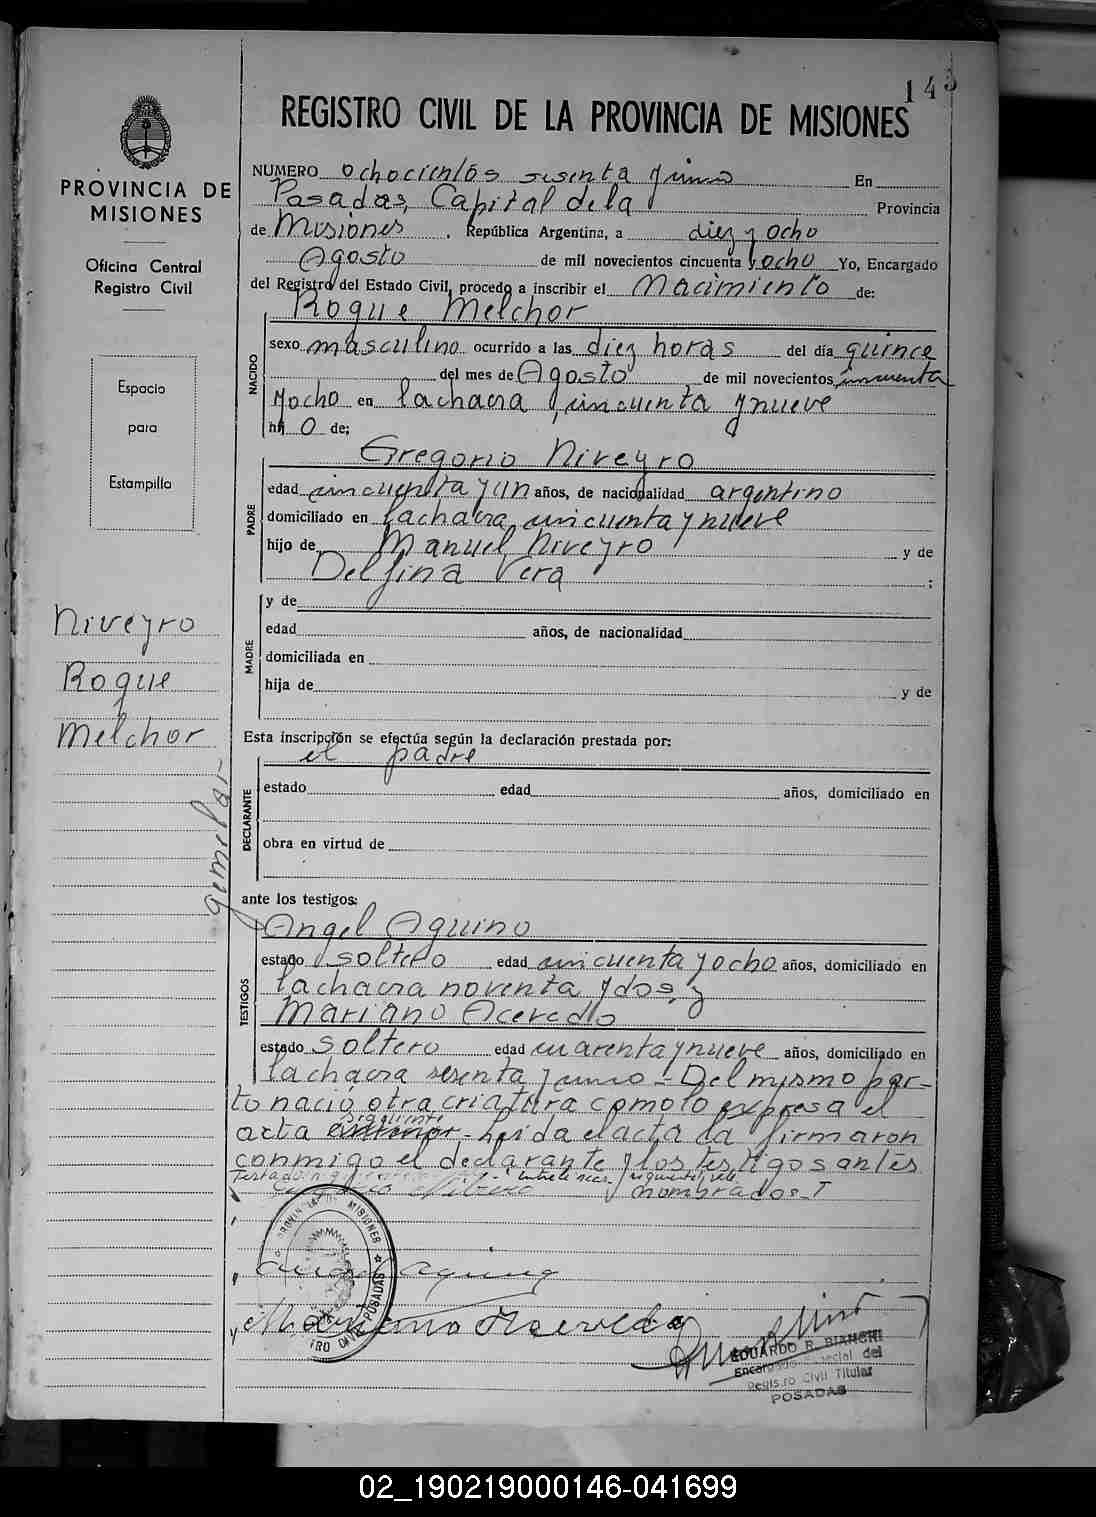 143
REGISTRO CIVIL DE LA PROVINCIA DE MISIONES
PROVINCIA DE
MISIONES
Oficina Central
Registro Civil
Espacio
para
Estampilla
Niveyro
Roque
Melchor
gemelar
NUMERO ochocientos sesenta y cinco En
Posadas, Capital de la Provincia
de Misiones. República Argentina, a diez y ocho
Agosto de mil novecientos cincuenta y ocho Yo, Encargado
del Registro del Estado Civil, procedo a inscribir el Nacimiento de:
NACIDO
Roque Melchor
sexo masculino ocurrido a las diez horas del día quince
del mes de Agosto, de mil novecientos cincuenta
y ocho en la chacra cincuenta y nueve
hijo de;
PADRE
Gregorio Niveyro
edad cincuenta y un años, de nacionalidad argentino
domiciliado en la chacra cincuenta y nueve
hijo de Manuel Niveyro y de
Delfina Vera ;
MADRE
y de
edad años, de nacionalidad
domiciliada en
hija de y de
Esta inscripción se efectúa según la declaración prestada por:
DECLARANTE
el padre
estado edad años, domiciliado en
obra en virtud de
ante los testigos:
TESTIGOS
Angel Aquino
estado soltero edad cincuenta y ocho años, domiciliado en
la chacra noventa y dos y
Mariano Acevedo
estado soltero edad cuarenta y nueve años, domiciliado en
la chacra sesenta y cinco - Del mismo par-
to nació otra criatura como lo expresa el
siguiente
acta anterior - Leída el acta la firmaron
conmigo el declarante y los testigos antes
Testado: entre lineas: siguiente, vale
nombrados
Aquino
Mariano Acevedo
PROVINCIA MISIONES
REGISTRO CIVIL POSADAS
EDUARDO R. BIANCHI
Encargado Especial del
Registro Civil Titular
POSADAS
02_190219000146-041699